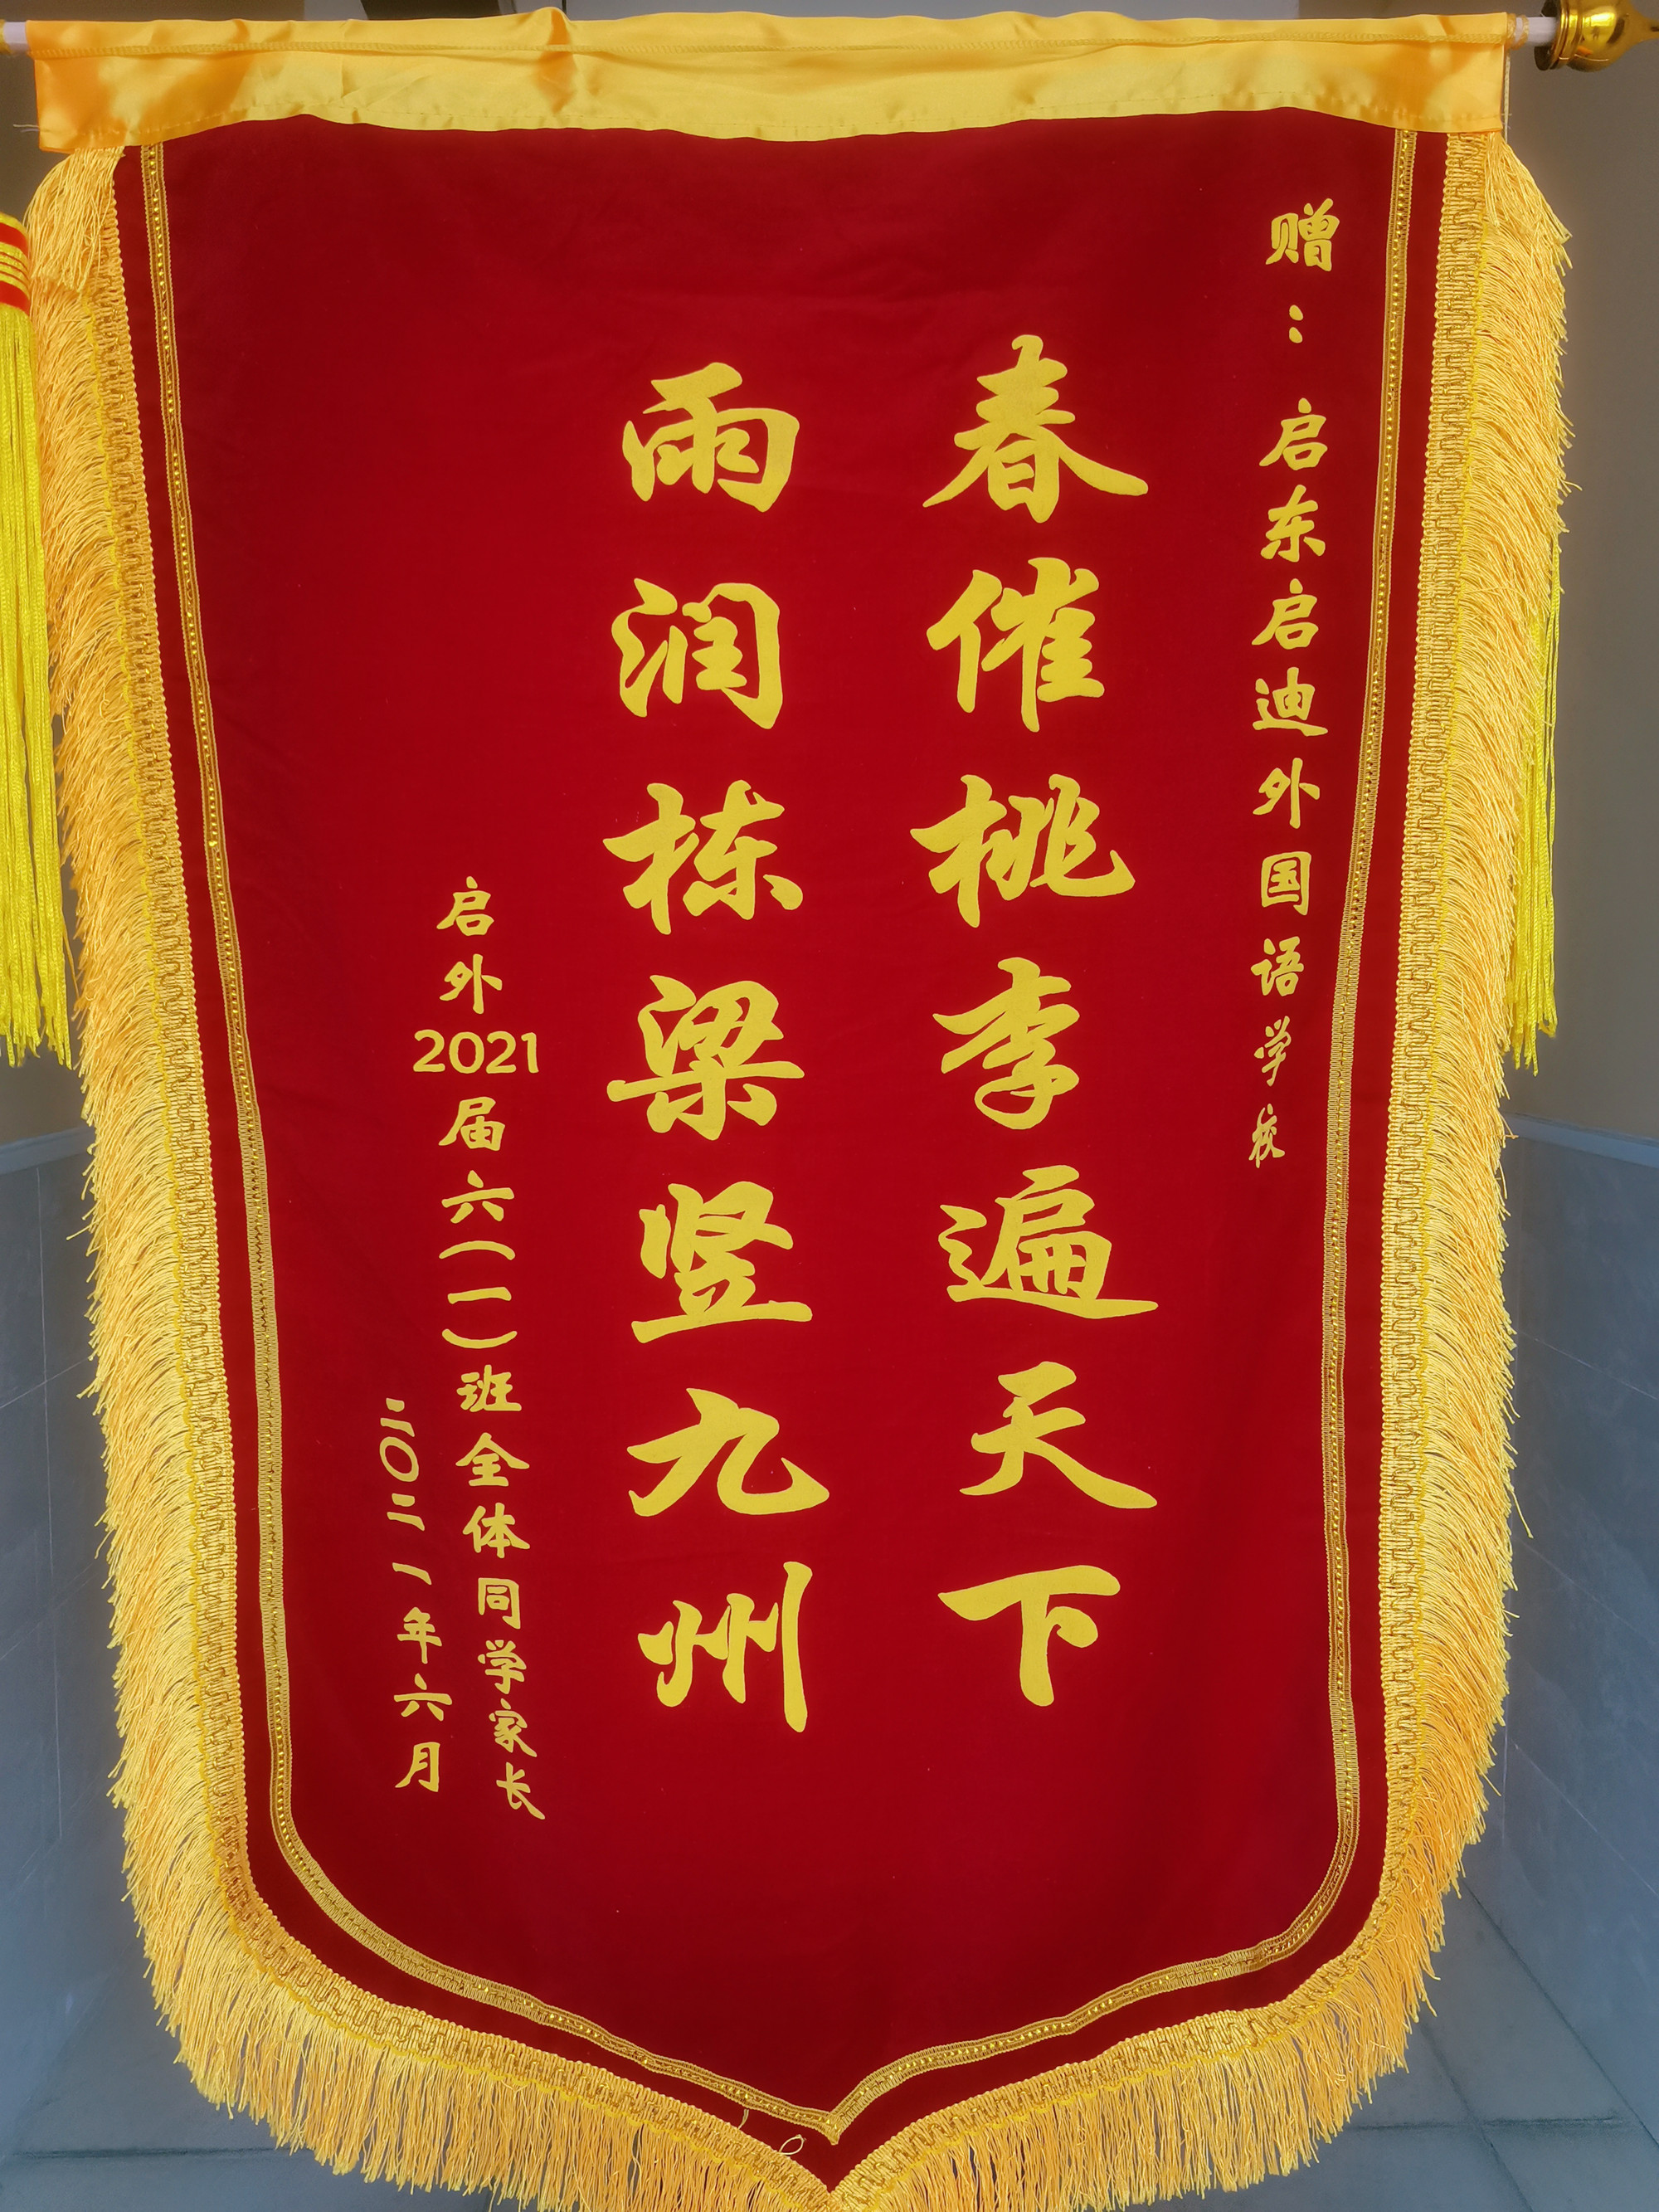 赠：启东启迪外国语学校
春催桃李遍天下
雨润栋梁竖九州
启外2021届六(一)班全体同学家长
二〇二一年六月